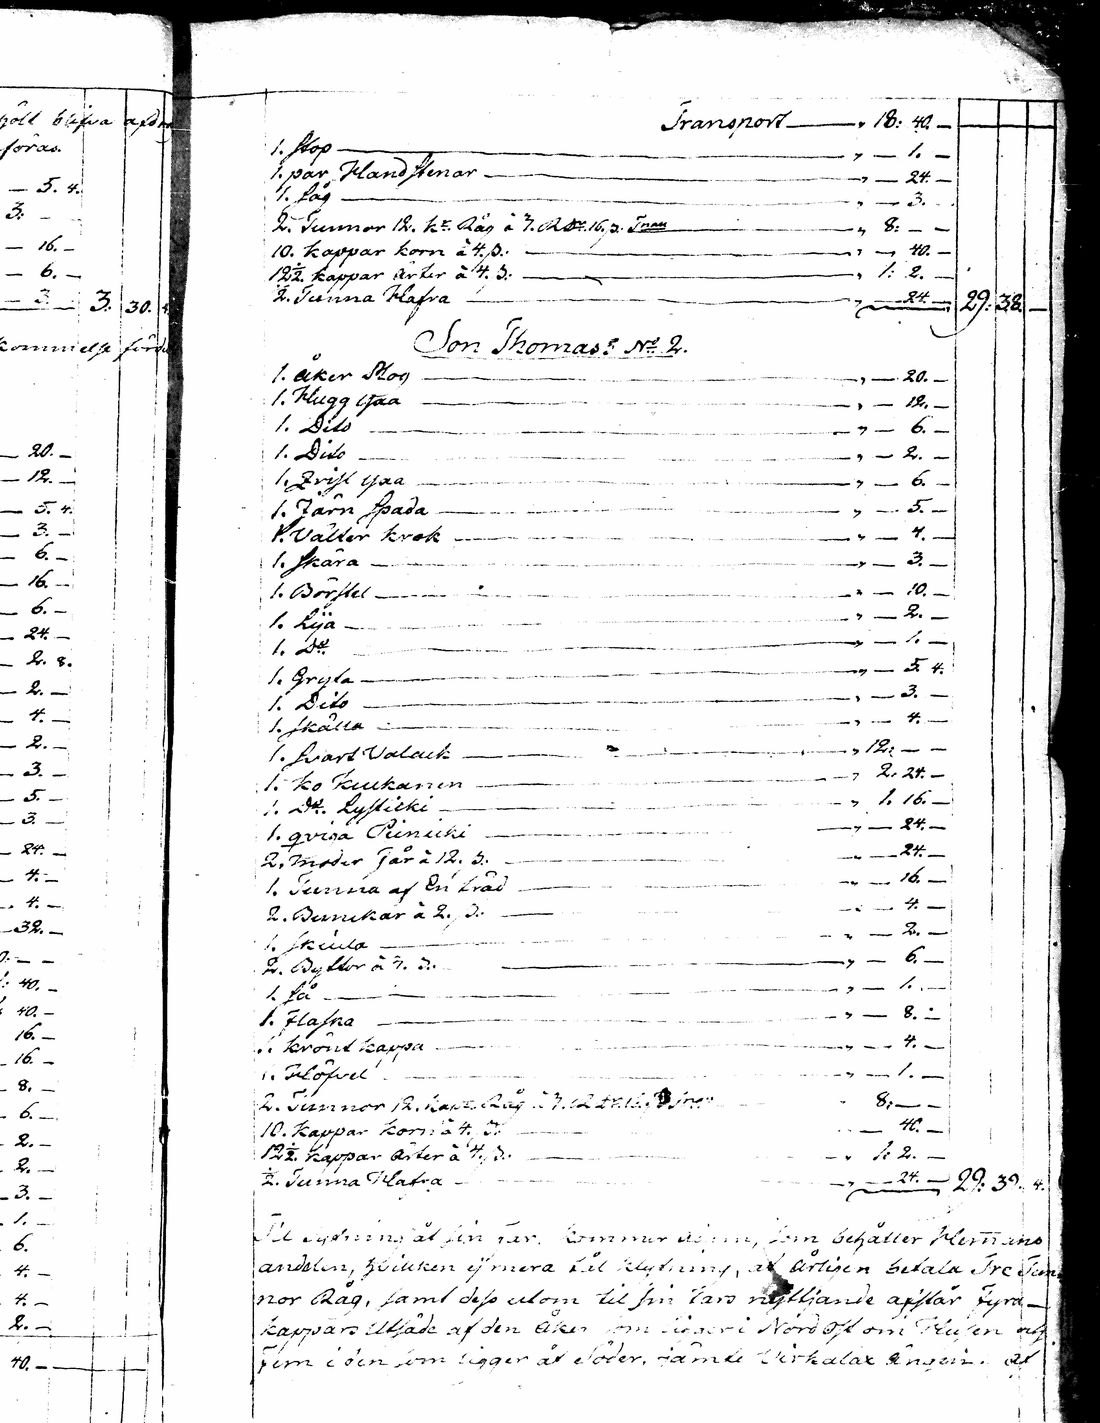 hölt blifva afdr
föras.
— 5. 4.
3. —
— 16. —
— 6. —
— 3. — 3. 30. 4
kommelse förd
— 20. —
— 12. —
— 5. 4.
— 3. —
— 6. —
— 16. —
— 6. —
— 24. —
— 2. 8.
— 2. —
— 4. —
— 2. —
— 3. —
— 5. —
— 3. —
— 24. —
— 4. —
— 4. —
— 32. —
— —
40. —
40. —
16. —
— 16. —
— 8. —
— 6. —
— 2. —
— 2. —
— 3. —
— 1. —
6. —
— 4. —
— 4. —
— 2. —
40. —
Transport — „ 18: 40. —
1. Stop — „ — 1. —
1. par Handstenar — „ — 24. —
1. Såg — „ — 3. —
2. Tunnor 12. kr. Råg à 3. Rdr. 16. ß. Tnan — „ 8: — —
10. kappar korn à 4. ß. — „ — 40. —
12½. kappar Ärter à 4. ß. — „ 1: 2. —
½. Tunna Hafra — „ — 24. — 29: 38. —
Son Thomas: No 2.
1. åker Plog — „ — 20. —
1. Hugg yxa — „ — 12. —
1. Dito — „ — 6. —
1. Dito — „ — 2. —
1. Trist yxa — „ — 6. —
1. Järn Spada — „ — 5. —
1. Välter krok — „ — 4. —
1. Skära — „ — 3. —
1. Börstel — „ — 10. —
1. Lija — „ — 2. —
1. Do. — „ — 1. —
1. Gryta — „ — 5. 4.
1. Dito — „ — 3. —
1. Skålla — „ — 4. —
1. Svart Valack — „ 12: — —
1. ko kuukanen — „ 2: 24. —
1. Do. Lystikki — „ 1. 16. —
1. qviga — „ — 24. —
2. moder får à 12. ß. — „ — 24. —
1. Tunna af En träd — „ — 16. —
2. à 2. ß. — „ — 4. —
1. — „ — 2. —
2. Byttor à 3. ß. — „ — 6. —
1. Så — „ — 1. —
1. Flaska — „ — 8. —
1. krönt kappa — „ — 4. —
1. Höfvel — „ — 1. —
2. Tunnor 12. kapr. Råg à 3. — „ 8: — —
10. kappar korn à 4. ß. — „ — 40. —
12½. kappar Ärter à 4. ß. — „ 1: 2. —
½. Tunna Hafra — „ — 24. — 29: 39. 4.
Til åt sin Far, kommer som behåller Hemans
andelen, hvilken ij mera til klytning, at Årligen betala Tre Tun
nor Råg, samt dess utom til sin Fars nyttjande afstår Fyra
kappars Utsäde af den åker som ligger i Nordost om Husen och
Fem i den som ligger åt Söder, jämte Virkalax Ängen. at